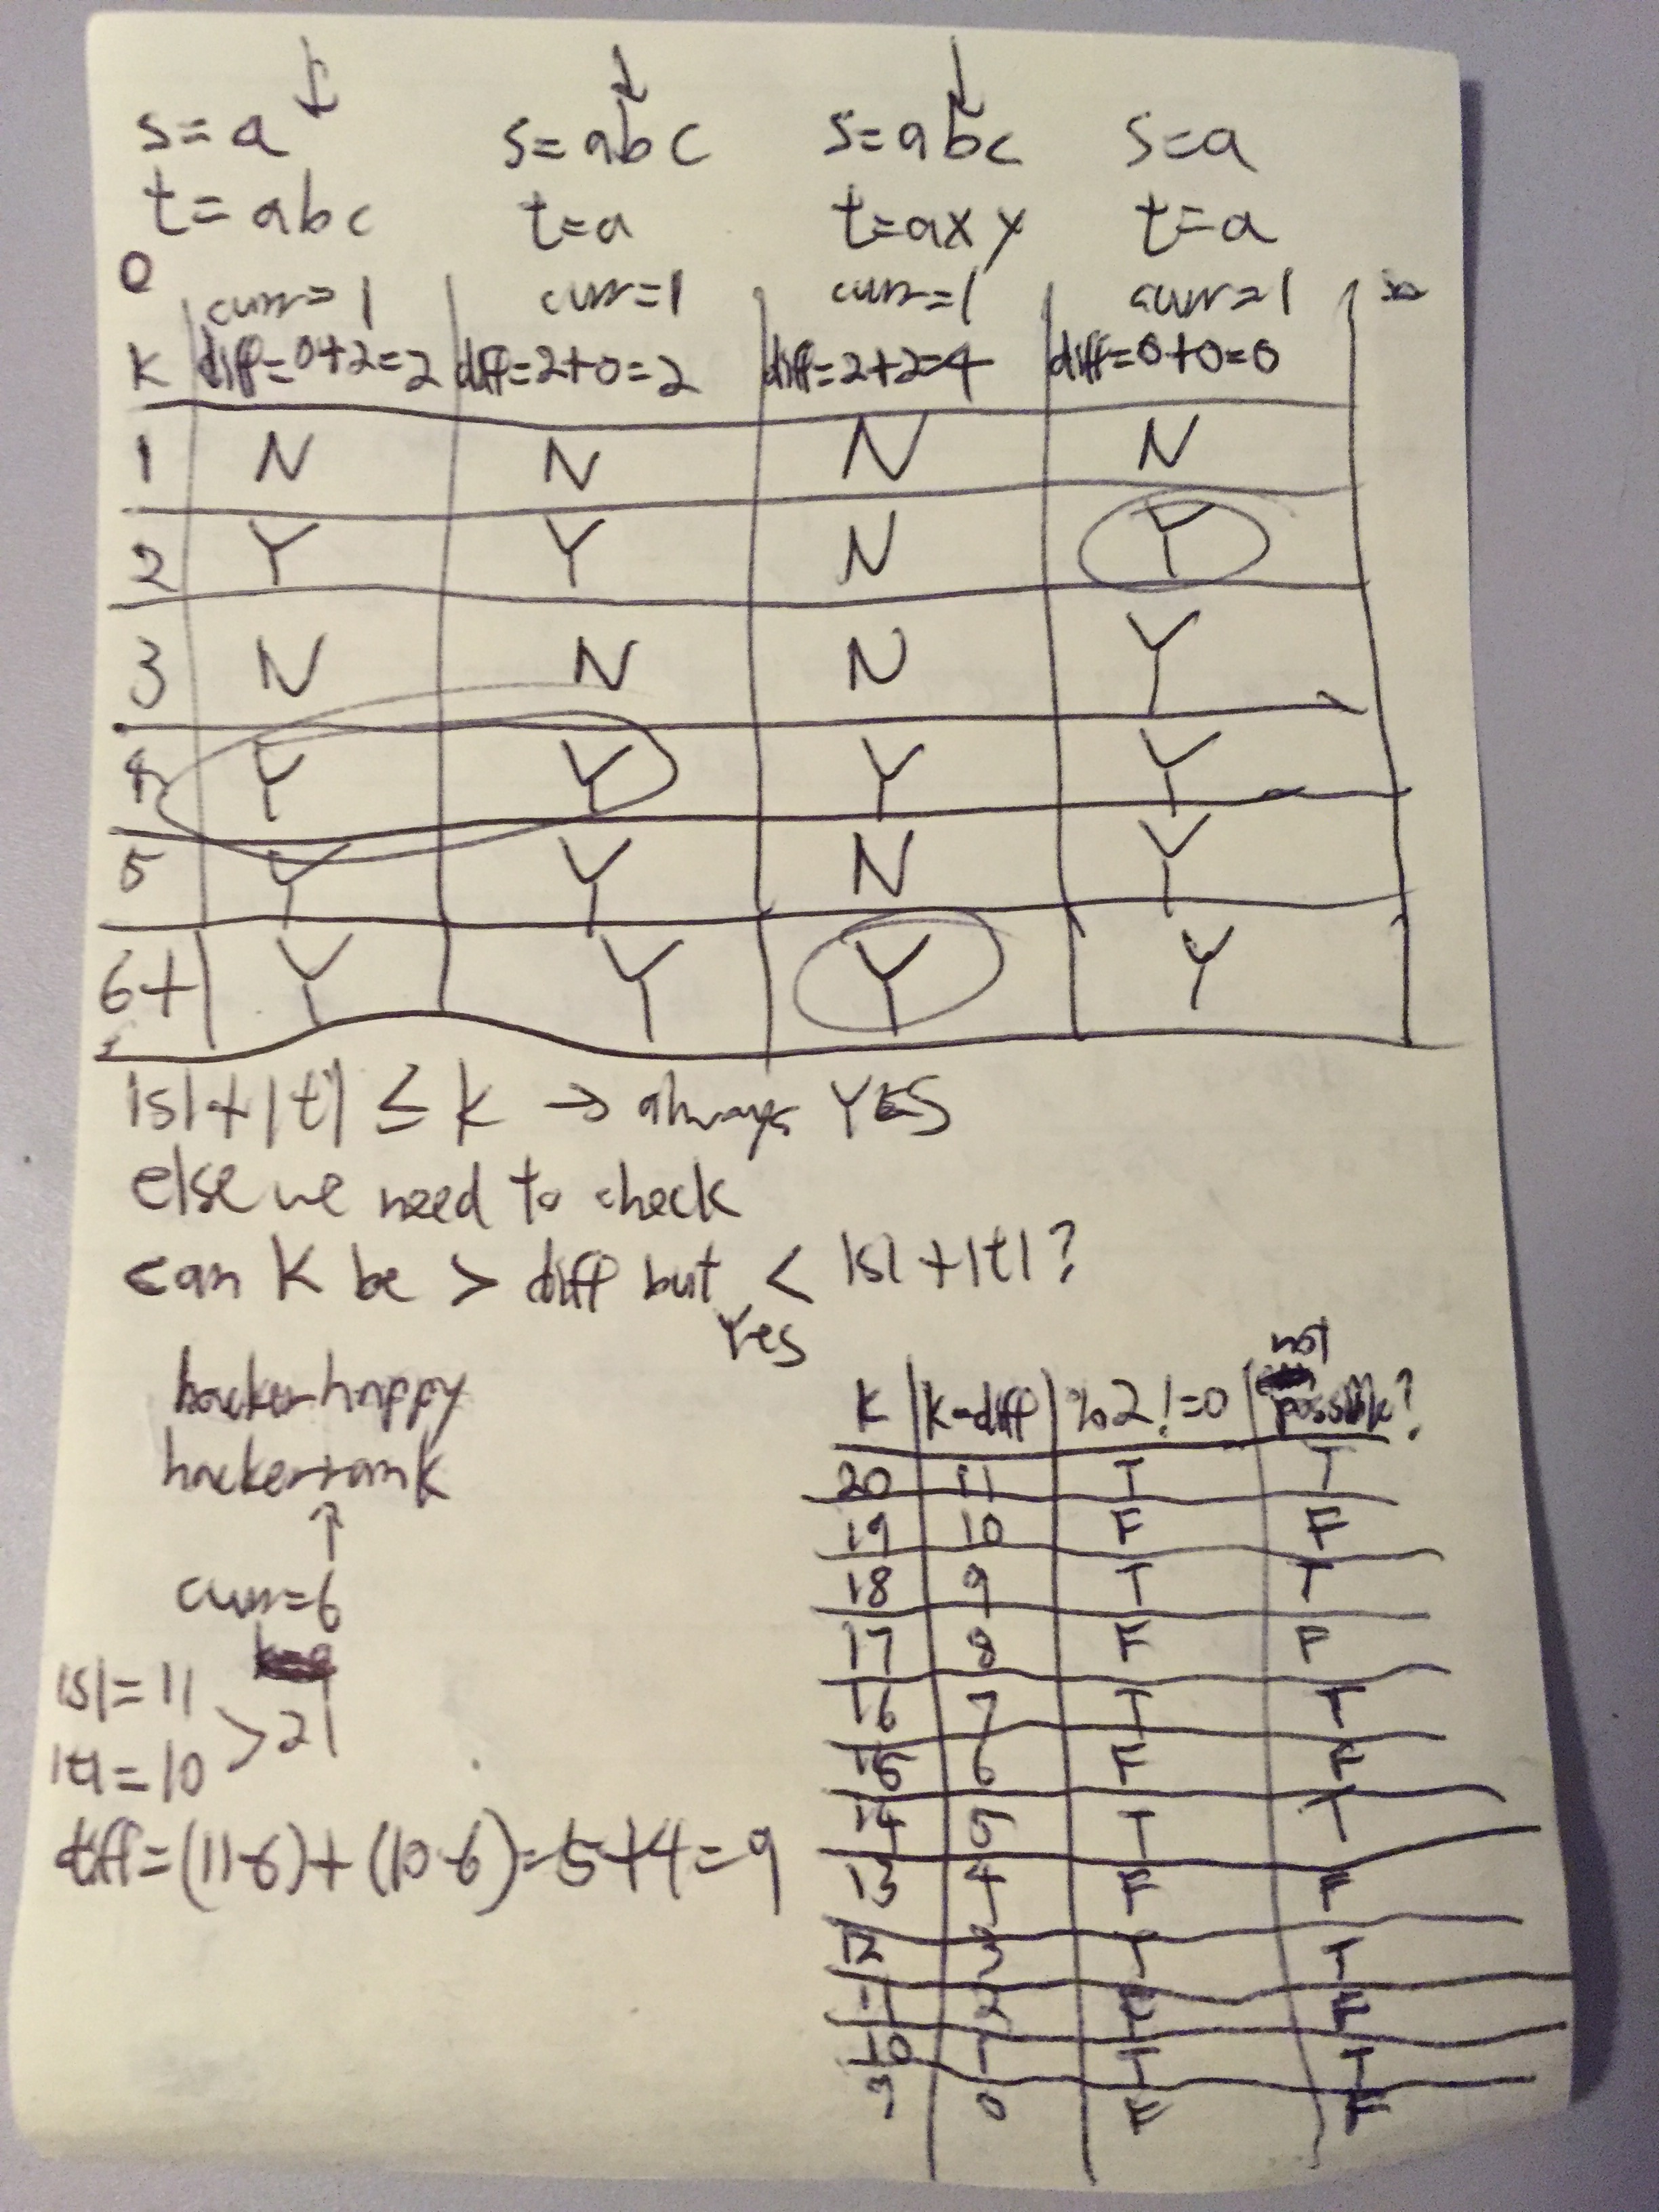 s=a s=abc s=abc s=a
t=abc t=a t=axy t=a
0
curr=1 curr=1 curr=1 curr=1
K diff=0+2=2 diff=2+0=2 diff=2+2=4 diff=0+0=0
1 N N N N
2 Y Y N Y
3 N N N Y
4 Y Y Y Y
5 Y Y N Y
6+ Y Y Y Y
|s|+|t| ≤ k → always YES
else we need to check
can K be > diff but < |s|+|t|?
Yes
hackerhappy
hackerrank
↑
curr=6
|s|=11
> 21
|t|=10
diff=(11-6)+(10-6)=5+4=9
not
K k-diff %2!=0 possible?
20 11 T T
19 10 F F
18 9 T T
17 8 F F
16 7 T T
15 6 F F
14 5 T T
13 4 F F
12 3 T T
11 2 F F
10 1 T T
9 0 F F